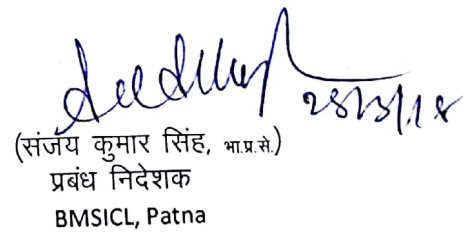 28/3/18
(संजय कुमार सिंह, भा.प्र.से.)
प्रबंध निदेशक
BMSICL, Patna